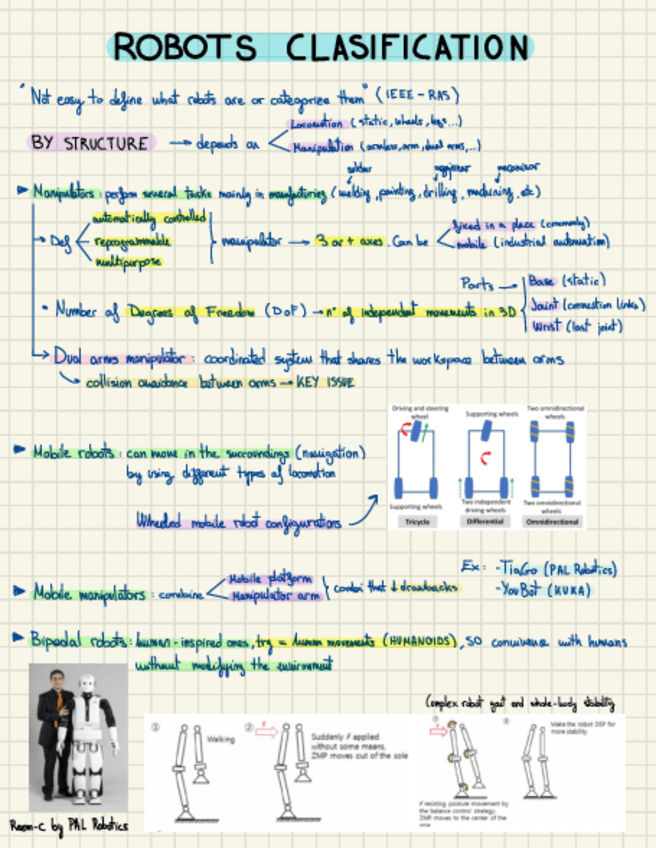 ROBOTS CLASIFICATION
"Not easy to define what robots are or categorize them" (IEEE-RAS)
BY STRUCTURE → depends on
Locomotion (static, wheels, legs...)
Manipulation (armless, arm, dual arms,...)
soldar
agujerear
mecanizar
Manipulators: perform several tasks mainly in manufacturing (welding, painting, drilling, machining, etc)
→ Def
automatically controlled
reprogrammable
multipurpose
manipulator → 3 or + axes. Can be
fixed in a place (commonly)
mobile (industrial automation)
Parts →
Base (static)
Joint (connection links)
Wrist (last joint)
• Number of Degrees of Freedom (DoF) → nº of independent movements in 3D
Dual arms manipulator: coordinated system that shares the workspace between arms
collision avoidance between arms → KEY ISSUE
Driving and steering wheel
Supporting wheels
Two omnidirectional wheels
Mobile robots: can move in the surroundings (navigation)
by using different types of locomotion
Supporting wheels
Two independent driving wheels
Two omnidirectional wheels
Tricycle
Differential
Omnidirectional
Wheeled mobile robot configurations
Ex: -TiaGo (PAL Robotics)
-YouBot (KUKA)
Mobile manipulators: combine
Mobile platform
Manipulator arm
combi that ↓ drawbacks
Bipedal robots: human-inspired ones, try = human movements (HUMANOIDS), SO
with humans
without modifying the
Complex robot gait and whole-body stability
①
Walking
②
F
Suddenly F applied
without some means,
ZMP moves out of the sole
③
F resisting posture movement by
the balance control strategy.
ZMP moves to the center of the
sole
④
Make the robot DSP for
more stability
Reem-C by PAL Robotics